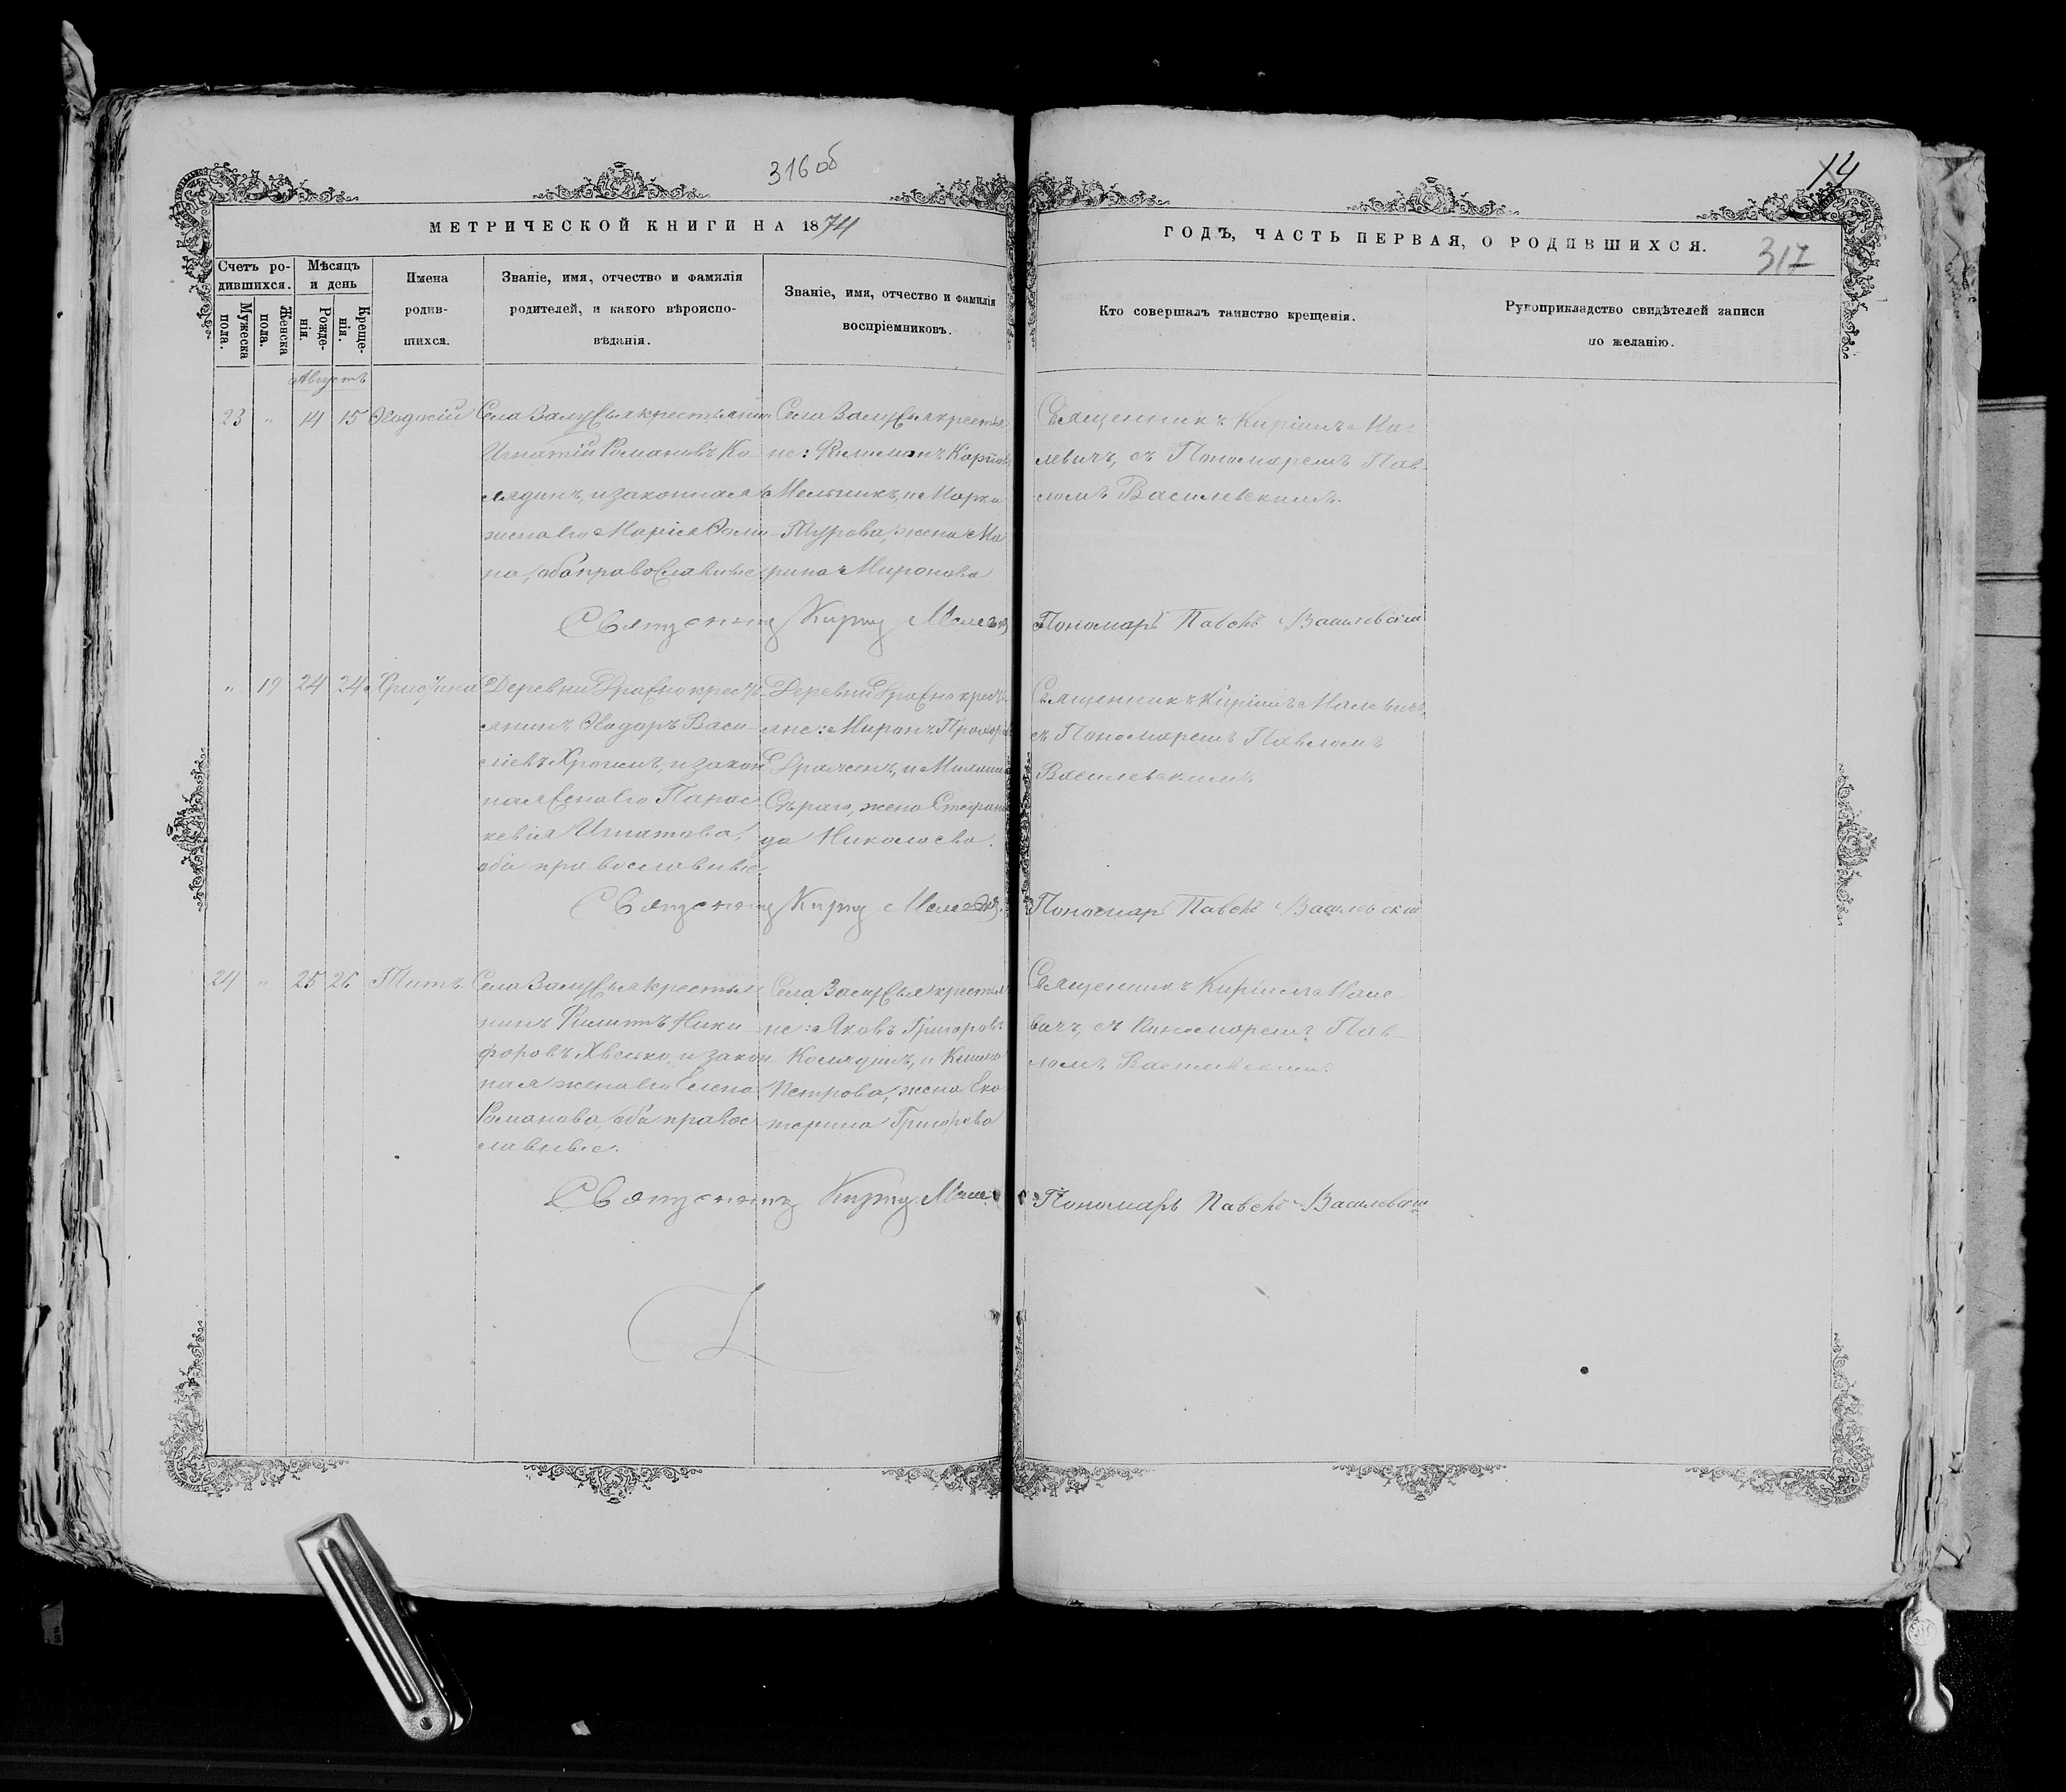 316 об
14
МЕТРИЧЕСКОЙ КНИГИ НА 1874
ГОДЪ, ЧАСТЬ ПЕРВАЯ, О РОДИВШИХСЯ.
317
Счетъ ро-
дившихся.
Мужеска
пола.
Женска
пола.
Мѣсяцъ
и день
Рожде-
нія.
Креще-
нія.
Имена
родив-
шихся.
Званіе, имя, отчество и фамилія
родителей, и какого вѣроиспо-
вѣданія.
Званіе, имя, отчество и фамилія
воспріемниковъ.
Кто совершалъ таинство крещенія.
Рукоприкладство свидѣтелей записи
по желанію.
Августъ
23 " 14 15
Села крестьянинъ
Игнатій Романовъ Ко-
лядинъ, и законная
жена его Марія Ѳоми-
на, оба православные
Села крестья-
не: Филимонъ Карповъ
Мельникъ, и Марка
Турова, жена Ма-
рина Миронова
Священникъ Кириллъ Ма-
левичъ, съ Пономаремъ Пав-
ломъ Василевскимъ.
Священникъ Кириллъ Малевичъ
Пономарь Павелъ Василевскій
" 19 24 24 Христина
Деревни крестья-
янинъ Ѳеодоръ Васи-
ліевъ и закон-
ная жена его Парас-
кевія Игнатова,
оба православные
Деревни крестья-
яне: Миронъ Прохоровъ
и
жена Стефани-
да Николаева.
Священникъ Кириллъ Малевичъ,
съ Пономаремъ Павломъ
Василевскимъ
Священникъ Кириллъ Малевичъ.
Пономарь Павелъ Василевскій
24 " 25 26 Титъ.
Села крестья-
нинъ Филиппъ Ники-
форовъ и закон-
ная жена его Елена
Романова, оба правос-
лавные.
Села крестья-
не: Яковъ Григоровъ
Колядинъ, и
Петрова, жена Ека-
терина Григорева
Священникъ Кириллъ Мале-
вичъ, съ Пономаремъ Пав-
ломъ Василевскимъ.
Священникъ Кириллъ
Пономарь Павелъ Василевскій